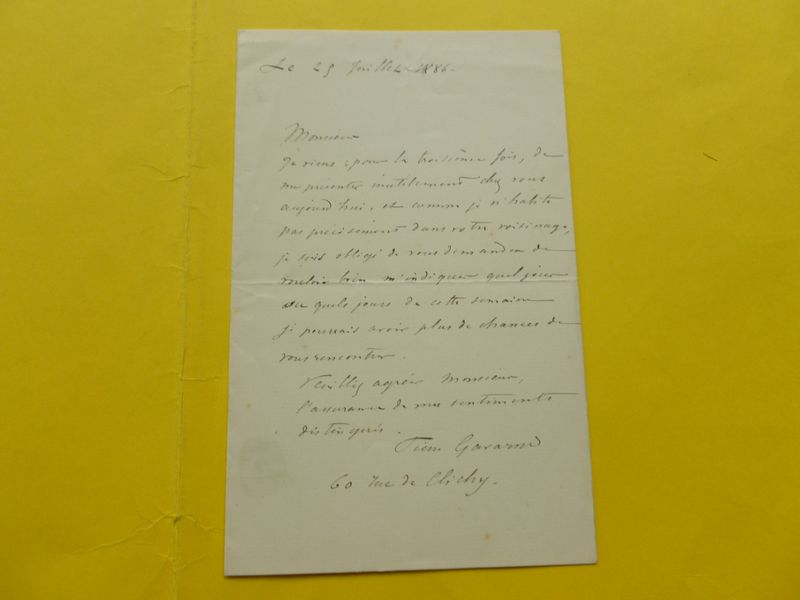 Le 29 Juillet 1886.
Monsieur
Je viens, pour la troisième fois, de
me présenter inutilement chez vous
aujourd'hui, et comme je n'habite
pas précisément dans votre voisinage,
je suis obligé de vous demander de
vouloir bien m'indiquer quel jour
ou quels jours de cette semaine
je pourrais avoir plus de chances de
vous rencontrer.
Veuillez agréer Monsieur,
l'assurance de mes sentiments
distingués.
Pierre Gavarni
60 rue de Clichy.